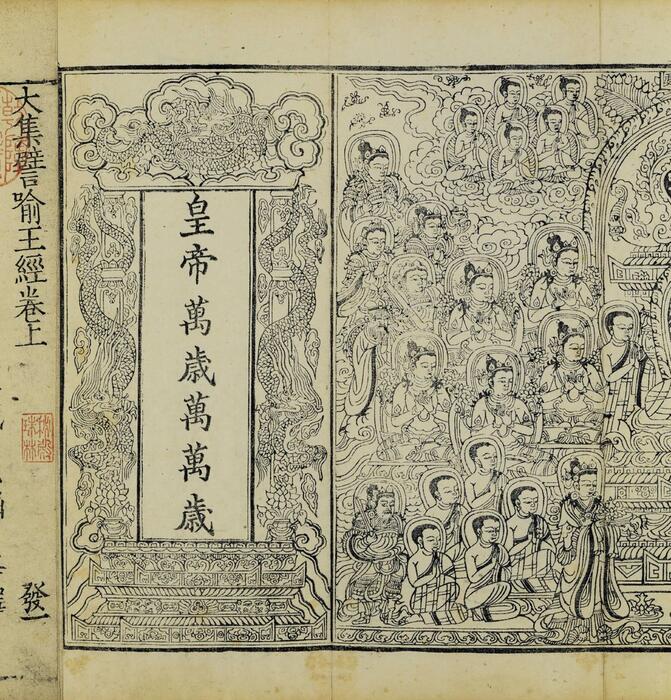 皇帝萬歲萬萬歲
大集譬喻王經卷上
發一